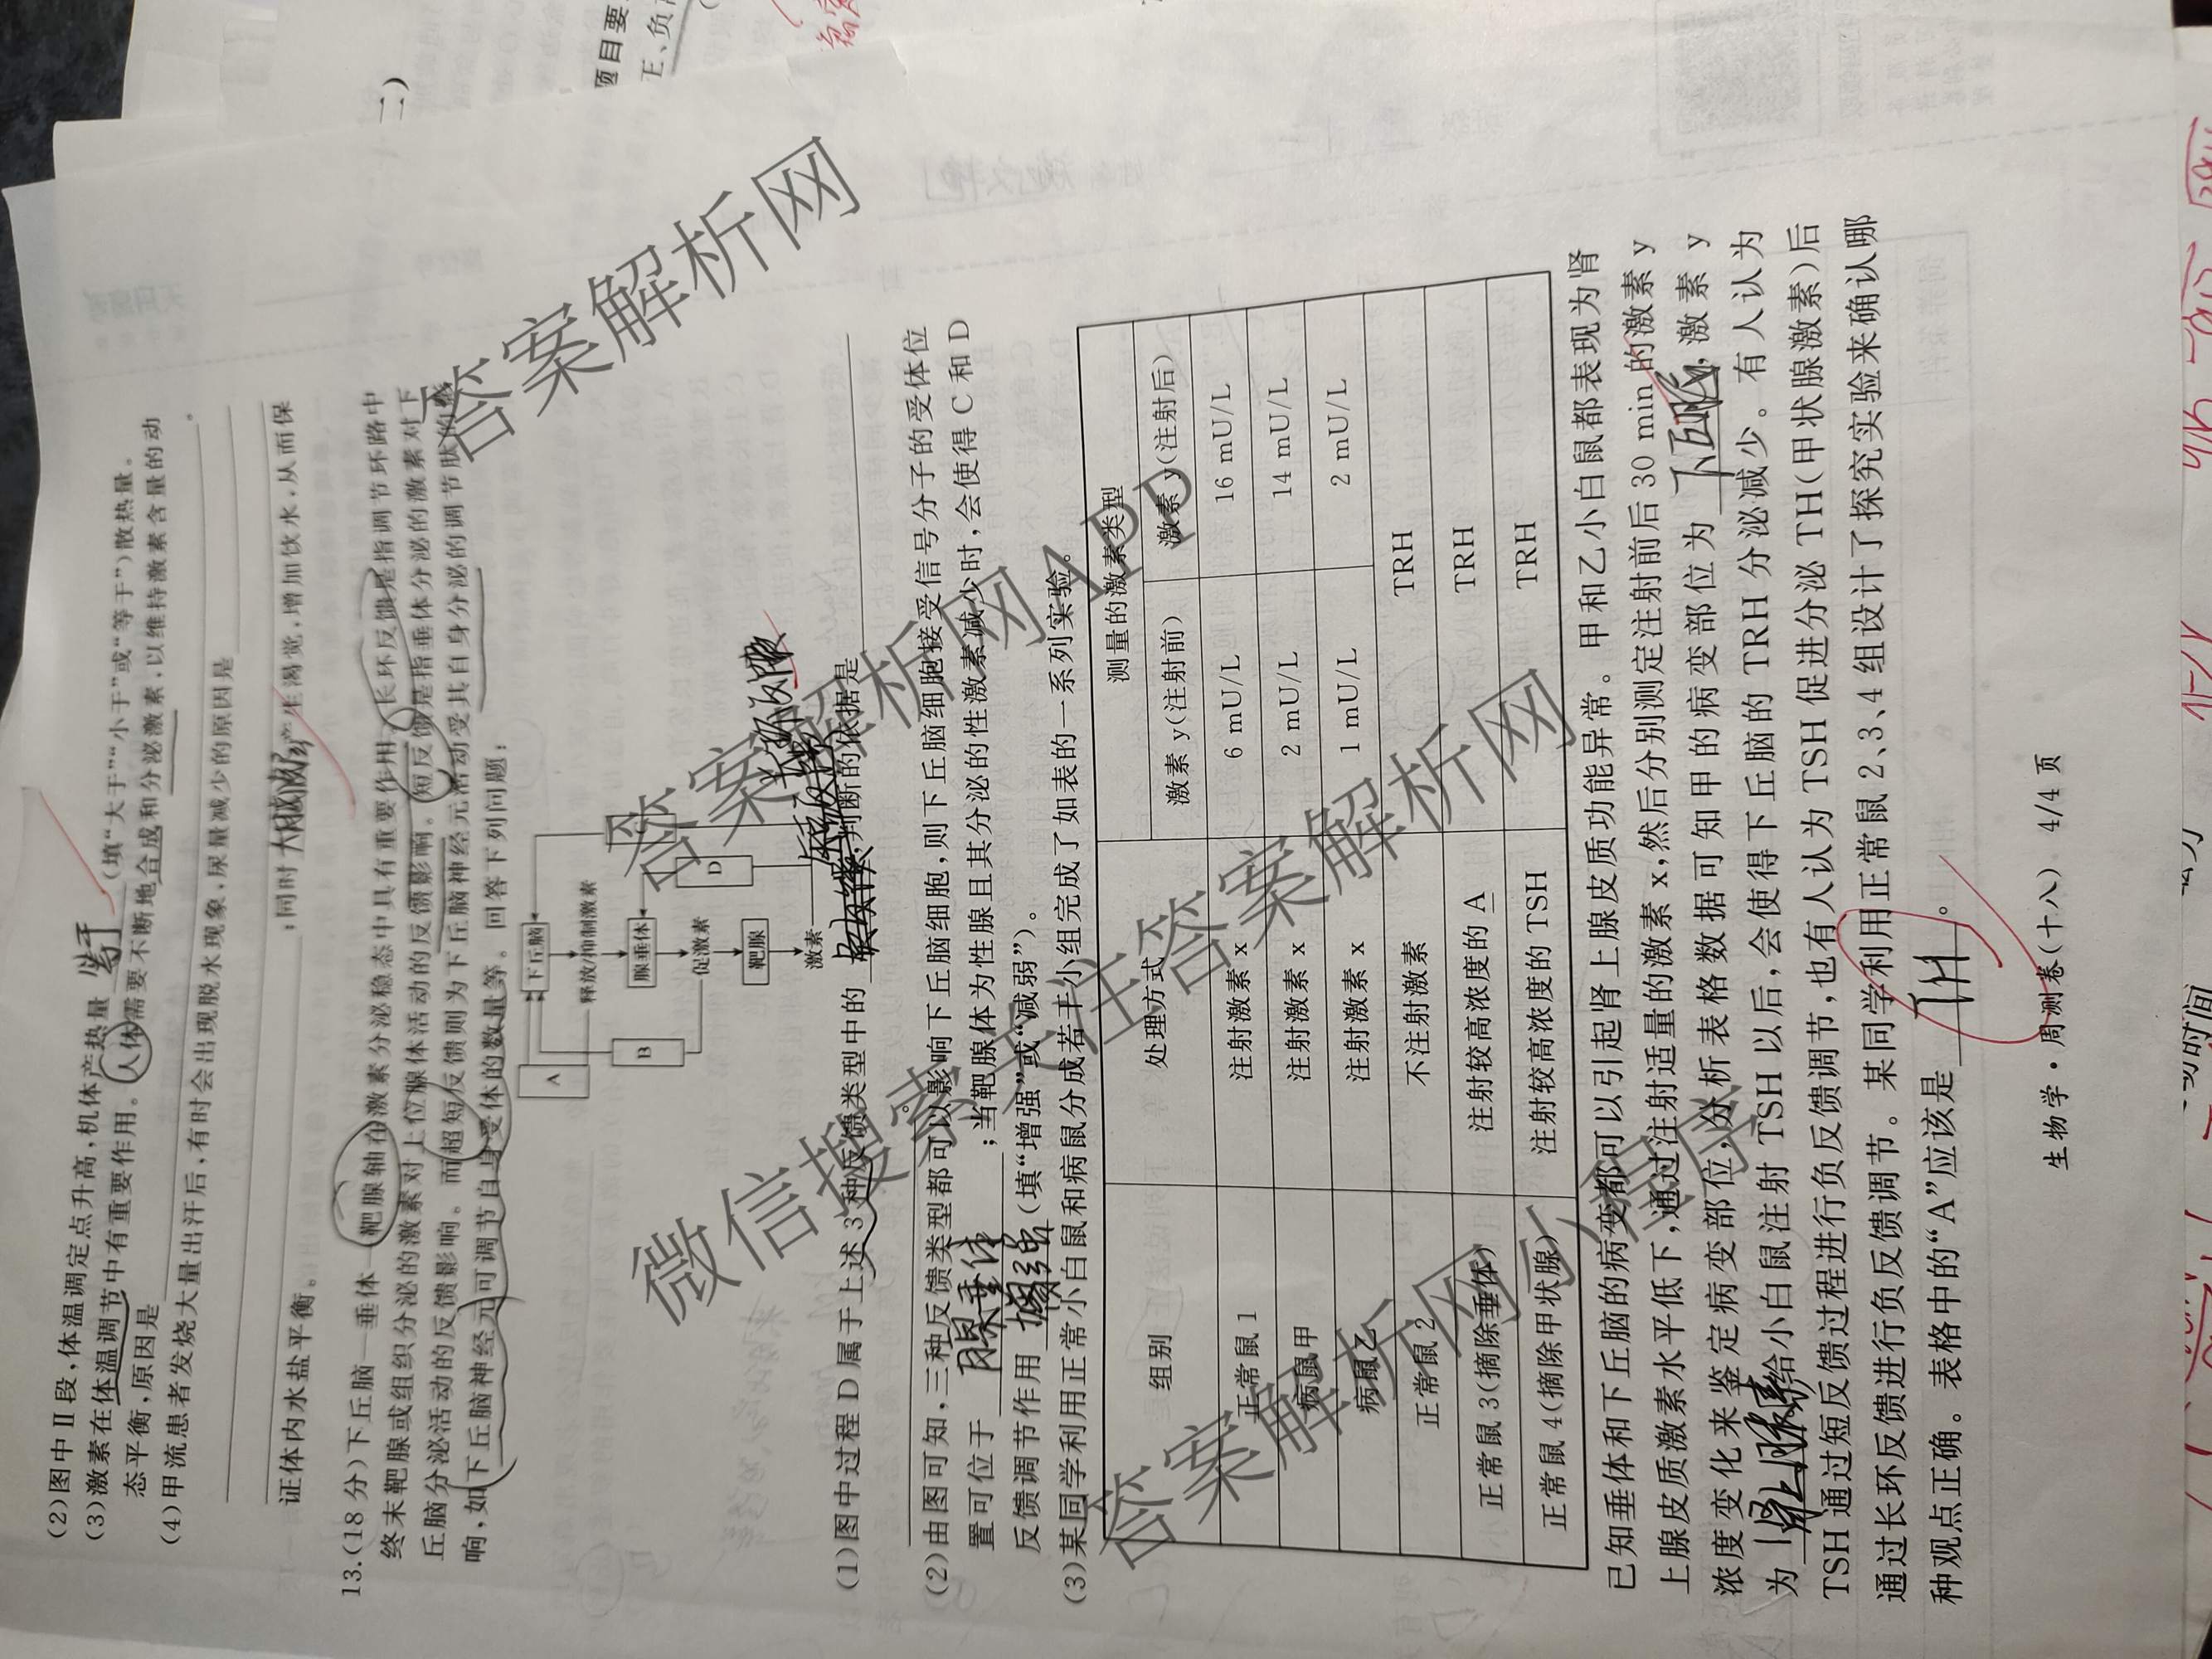 (2)图中Ⅱ段,体温调定点升高,机体产热量 等于 (填“大于”“小于”或“等于”)散热量。
(3)激素在体温调节中有重要作用。人体需要不断地合成和分泌激素,以维持激素含量的动
态平衡,原因是
。
(4)甲流患者发烧大量出汗后,有时会出现脱水现象,尿量减少的原因是
;同时 大脑皮层 产生渴觉,增加饮水,从而保
证体内水盐平衡。
13.(18分)下丘脑—垂体—靶腺轴在激素分泌稳态中具有重要作用。长环反馈是指调节环路中
终末靶腺或组织分泌的激素对上位腺体活动的反馈影响。短反馈是指垂体分泌的激素对下
丘脑分泌活动的反馈影响。而超短反馈则为下丘脑神经元活动受其自身分泌的调节肽的影
响,如下丘脑神经元可调节自身受体的数量等。回答下列问题:
A
B
下丘脑
释放/抑制激素
腺垂体
促激素
靶腺
激素
D
(1)图中过程D属于上述3种反馈类型中的
,判断的依据是
(2)由图可知,三种反馈类型都可以影响下丘脑细胞,则下丘脑细胞接受信号分子的受体位
置可位于 腺垂体 ;当靶腺体为性腺且其分泌的性激素减少时,会使得C和D
反馈调节作用 增强 (填“增强”或“减弱”)。
(3)某同学利用正常小白鼠和病鼠分成若干小组完成了如表的一系列实验。
组别 处理方式 测量的激素类型
激素y(注射前) 激素y(注射后)
正常鼠1 注射激素x 6 mU/L 16 mU/L
病鼠甲 注射激素x 2 mU/L 14 mU/L
病鼠乙 注射激素x 1 mU/L 2 mU/L
正常鼠2 不注射激素 TRH
正常鼠3(摘除垂体) 注射较高浓度的A TRH
正常鼠4(摘除甲状腺) 注射较高浓度的TSH TRH
已知垂体和下丘脑的病变都可以引起肾上腺皮质功能异常。甲和乙小白鼠都表现为肾
上腺皮质激素水平低下,通过注射适量的激素x,然后分别测定注射前后30 min的激素y
浓度变化来鉴定病变部位,分析表格数据可知甲的病变部位为 下丘脑 ,激素y
为 给小白鼠注射TSH以后,会使得下丘脑的TRH分泌减少。有人认为
TSH通过短反馈过程进行负反馈调节,也有人认为TSH促进分泌TH(甲状腺激素)后
通过长环反馈进行负反馈调节。某同学利用正常鼠2、3、4组设计了探究实验来确认哪
种观点正确。表格中的“A”应该是 TH 。
生物学·周测卷(十八) 4/4页
答案解析网
答案解析网APP
微信搜索关注答案解析网
答案解析网